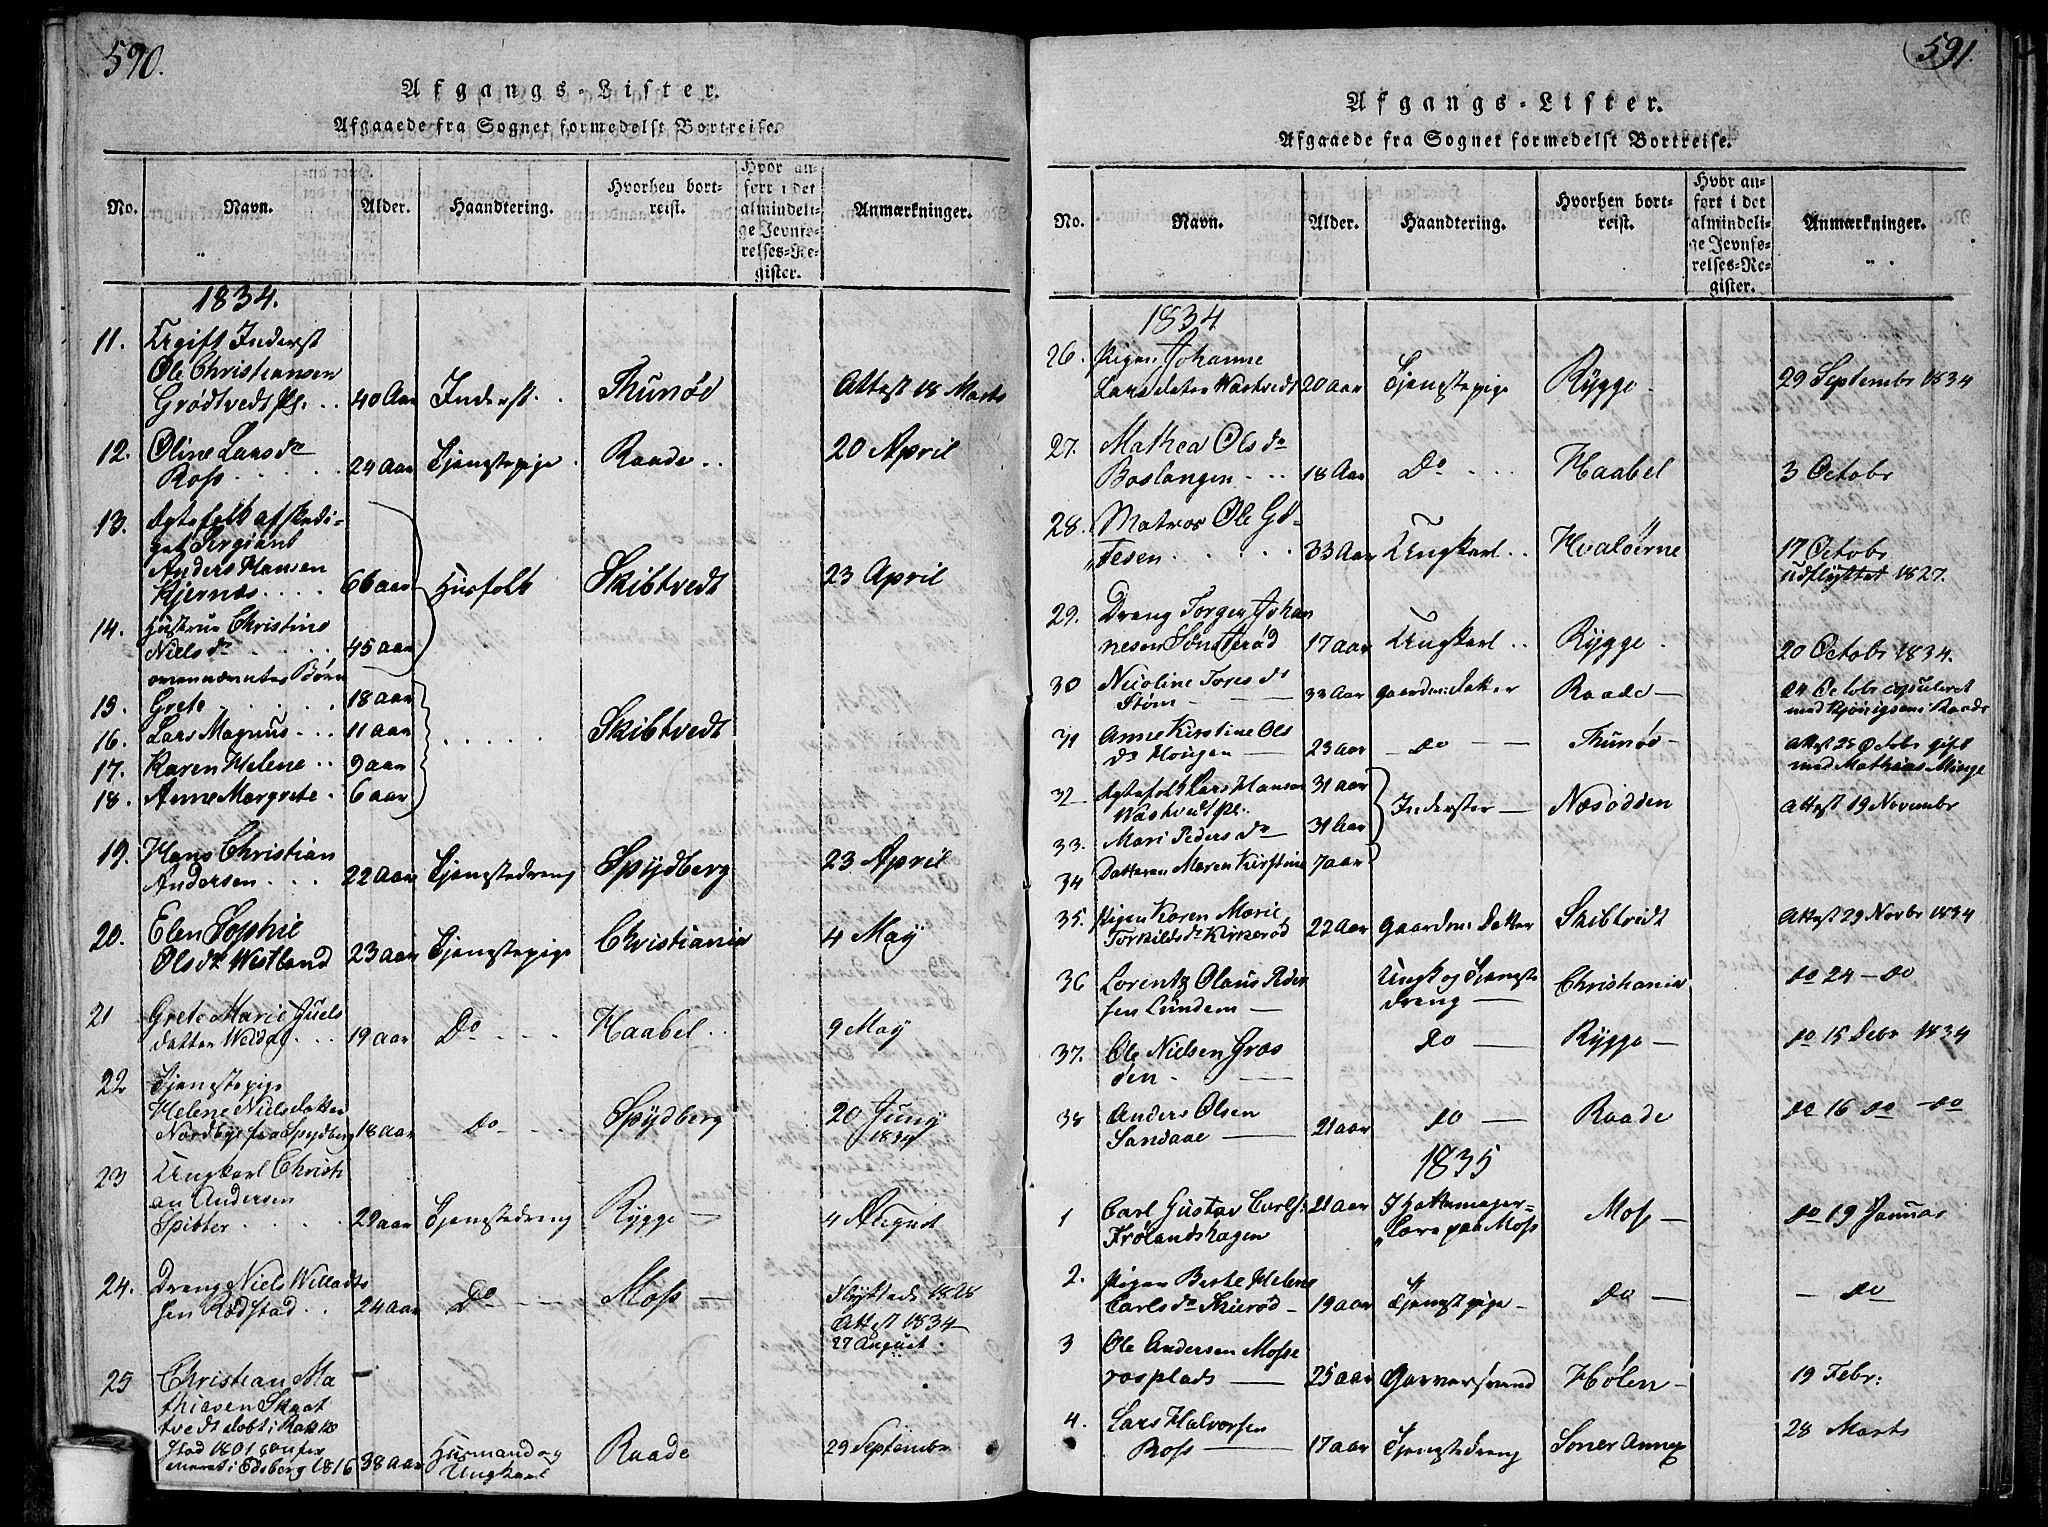 590.
Afgangs-Lister.
Afgaaede fra Sognet formedelst Bortreise.
No. Navn. Alder. Haandtering. Hvorhen bort-reist. Hvor an-ført i det almindeli-ge Jevnfø-relses-Re-gister. Anmærkninger.
1834.
11. Ugift Inderst
Ole Christiansen
Grødtvedt Pl. 40 Aar Inderst Thunøe Attest 18 Marts
12. Oline Larsdr
Ross 24 Aar Tjenstepige Raade 20 April
13. Egtefolk afskedi-
get Sergiant
Anders Hansen
Kjernæs 66 aar Husfolk Skibtvedt 23 April
14. Hustrue Christine
Nielsdr 45 aar
Børn
15. Grete 18 aar
16. Lars Magnus 11 aar Skibtvedt
17. Karen Helene 9 aar
18. Anne Margrete 6 aar
19. Hans Christian
Andersen 22 Aar Tjenstedreng Spydberg 23 April
20. Elen Sophie
Olsdr Westland 23 aar Tjenstepige Christiania 4 May
21 Grete Marie Juels
datter 19 aar Do Haabel 9 May
22 Tjenstepige
Helene Nielsdatter
Nordbye fra Spydberg 18 aar Do Spydberg 20 Juny
1834
23 Ungkarl Christi
an Andersen
Spitter 22 aar Tjenstedreng Rygge 4 August
24. Dreng Niels Willads
sen Rødstad 24 aar Do Moss Flyttede 1828
Attest 1834
27 August
25 Christian Ma
thiesen
tvedt døbt i Rakke
stad 1801 confir
meret i Edsberg 1816 38 aar Husmand og Ungkarl Raade 29 Septembr
591.
Afgangs-Lister.
Afgaaede fra Sognet formedelst Bortreise.
No. Navn. Alder. Haandtering. Hvorhen bort-reist. Hvor an-ført i det almindeli-ge Jevnfø-relses-Re-gister. Anmærkninger.
1834
26. Pigen Johanne
Larsdater Wastvedt 20 aar Tjenstepige Rygge 29 Septembr 1834
27. Mathea Olsdr
Boslangen 18 Aar Do Haabel 3 Octobr
28. Matros Ole Gu-
33 Aar Ungkarl Hvaløerne 17 Octobr
udflyttet 1827.
29. Dreng Torger Johan
nesen Sønsterød 17 aar Ungkarl Rygge 20 Octobr 1834.
30 Nicoline Toresdr
Strøm 33 Aar Gaardm: Datter Raade 24 Octobr copuleret
med i Raade
31 Anne Kirstine Ols
dr Hougen 23 aar Do Thunøe Attest 25 Octobr gift
med Mathias Minge
32 Egtefolk Lars Hansen 31 aar
Wastvedt Pl. Inderster Næsodden Attest 19 Novembr
33. Mari Pedersdr 31 Aar
34 Datteren Maren Kirstine 7 aar
35. Pigen Karen Marie
Torkildsdr Kirkerød 22 Aar Gaardm: Datter Skibtvedt Attest 29 Novbr 1834
36 Lorentz Olaus Peder
sen Lundem Ungk og Tjenste dreng Christiania do 24 do
37. Ole Nielsen Græs
øen Do Rygge do 15 Debr 1834
38 Anders Olsen
Sandaae 21 aar Do Raade do 16 do do
1835
1 Carl Gustav Carls:
Frølandshagen 21 aar Skottemager-Lære paa Moss Moss do 19 Januar
2. Pigen Berte Helene
Carlsdr Skierød 19 aar Tjenstpige Do do
3 Ole Andersen Mosse
rosplads 25 aar Garversvend Hølen 19 Febr:
4. Lars Halvorsen
Ross 17 aar Tjenstedreng Soner Annex 28 Marts